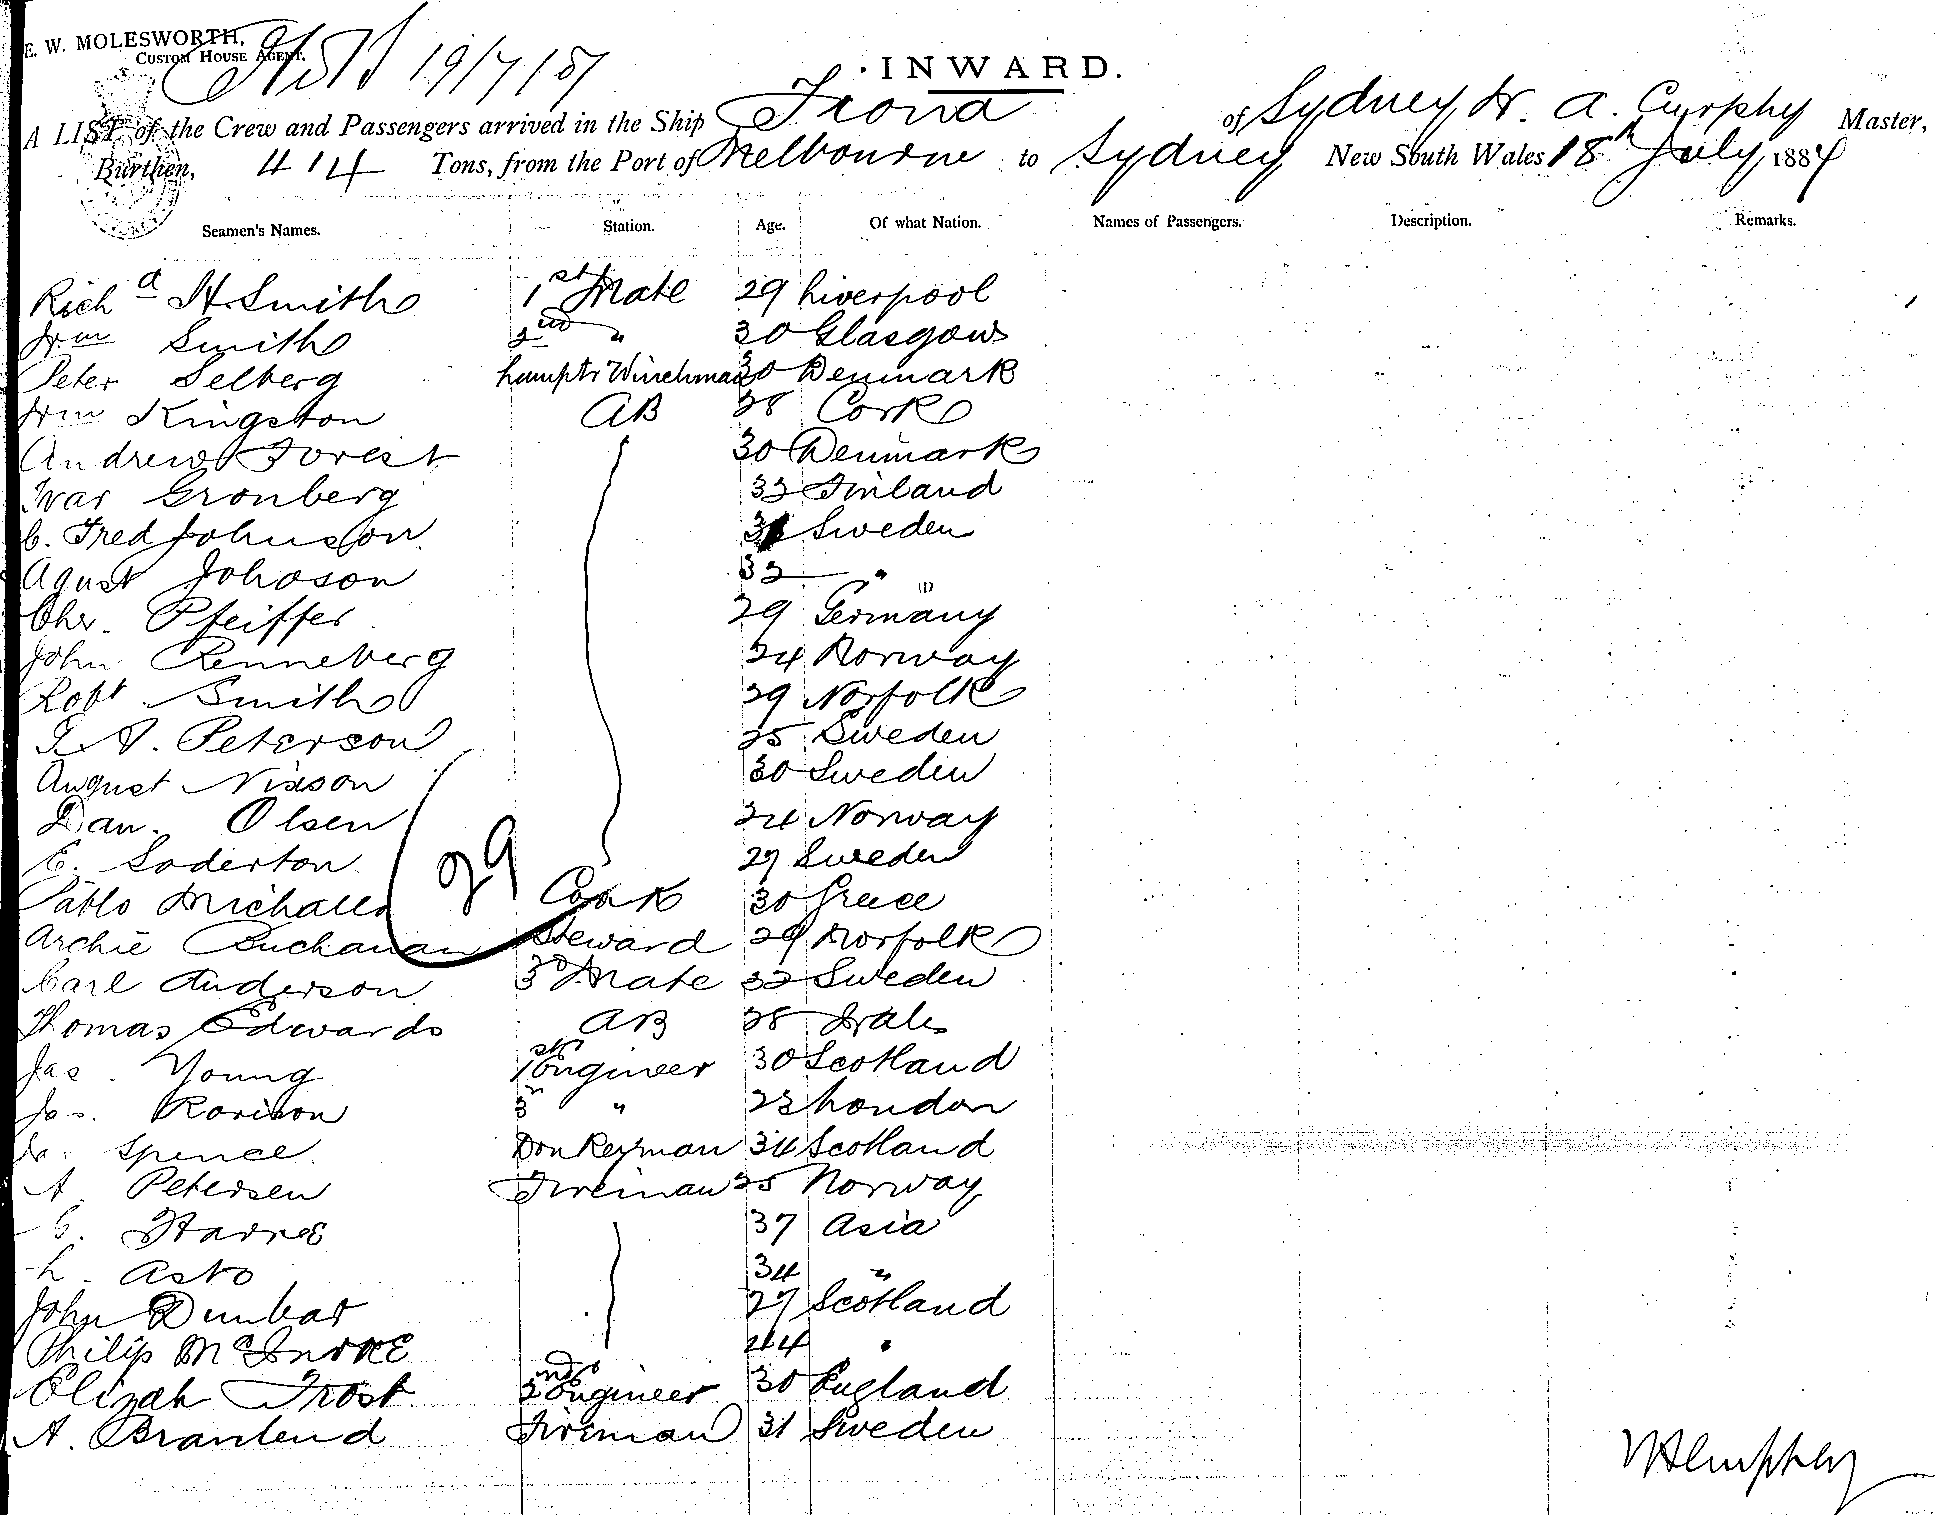 E. W. MOLESWORTH,
CUSTOM HOUSE AGENT.
19/7/87
INWARD.
A LIST of the Crew and Passengers arrived in the Ship Fiona of Sydney, W. A. Curphy Master,
Burthen, 414 Tons, from the Port of Melbourne to Sydney New South Wales 18th July, 1887
Seamen's Names. Station. Age. Of what Nation. Names of Passengers. Description. Remarks.
Richd H. Smith 1st Mate 29 Liverpool
Wm Smith 2nd " 30 Glasgow
Peter Selberg Lamptr Winchman 30 Denmark
Wm Kingston AB 28 Cork
Andrew Forest 30 Denmark
Ivar Gronberg 32 Finland
C. Fred Johnson Sweden
Agust Johoson 32 "
Chr. Pfeiffer 29 Germany
John Renneberg 24 Norway
Robt Smith 29 Norfolk
A. Peterson 25 Sweden
August Nixson 30 Sweden
Dan. Olsen 24 Norway
E. Soderton 27 Sweden
29
Pablo Cook 30 Greece
Archie Buchanan Steward 29 Norfolk
Carl Anderson 3d Mate 32 Sweden
Thomas Edwards AB 28 Wales
Jas. Young 1st Engineer 30 Scotland
Jas. Rorison 3r " 23 London
Spence Donkeyman 34 Scotland
A. Petersen Fireman 25 Norway
C. Harris 37 Asia
L. Asto 34 "
John Dunbar 27 Scotland
Philip 24 "
Elizah Frost 2nd Engineer 30 England
A. Brantend Fireman 31 Sweden